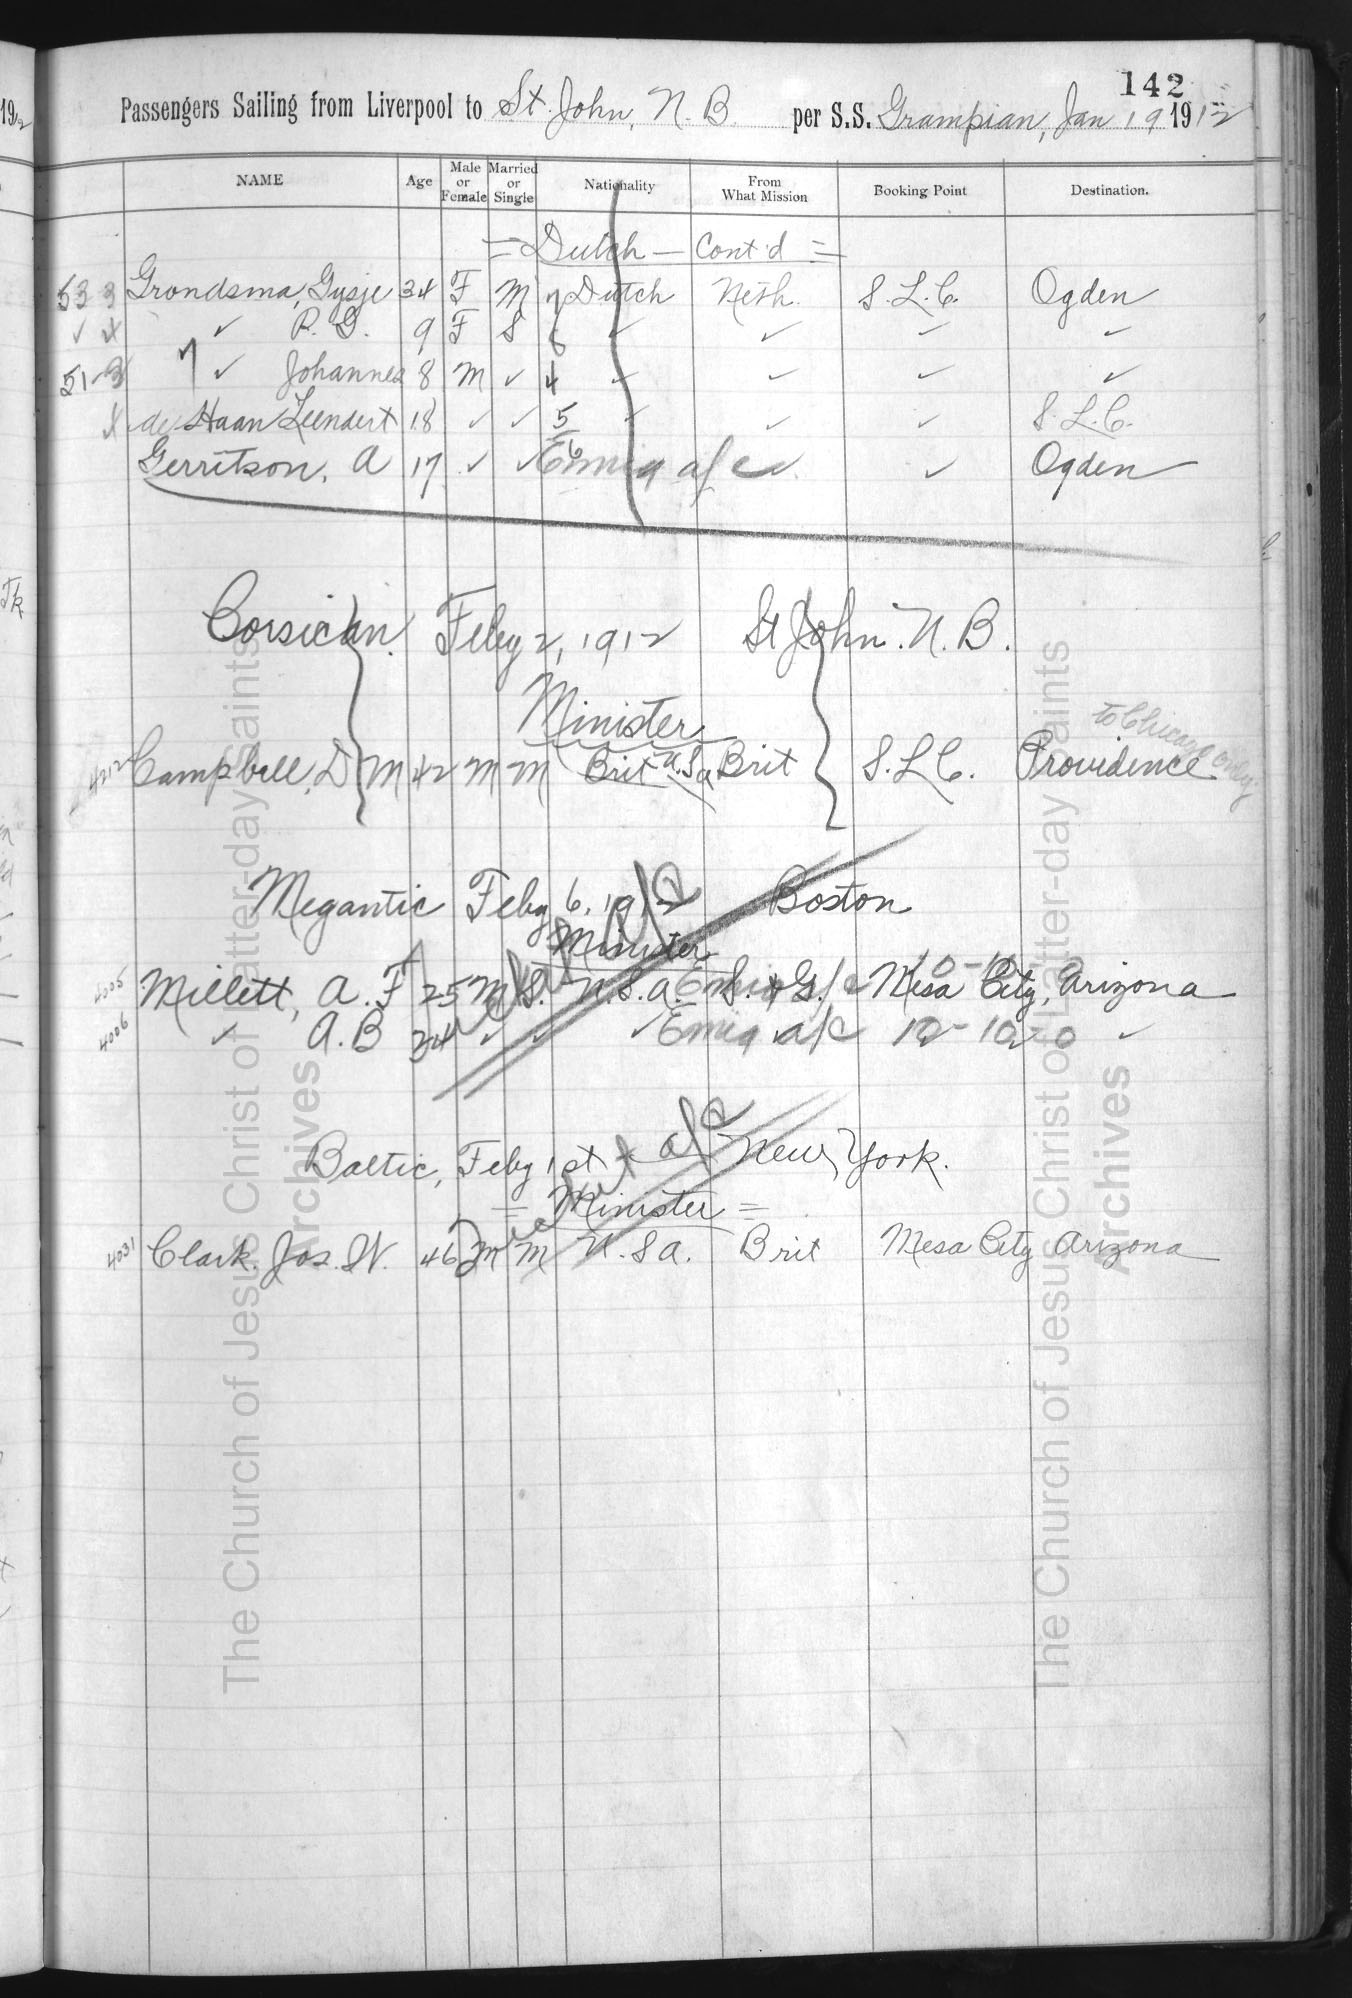 142
Passengers Sailing from Liverpool to St. John, N. B. per S.S. Grampian, Jan 19 1912
NAME Age Male or Female Married or Single Nationality From What Mission Booking Point Destination.
= Dutch - Cont'd =
53 3 Grondsma, Gysje 34 F M 7 Dutch Neth. S. L. C. Ogden
✓ 4 ✓ P. G. 9 F S 6 ✓ ✓ ✓ ✓
51-3 ✓ Johannes 8 M ✓ 4 ✓ ✓ ✓ ✓
de Haan Leendert 18 ✓ ✓ 5 ✓ ✓ ✓ S. L. C.
Gerritson, A 17 ✓ ✓ 6 Emig a/c ✓ ✓ Ogden
Corsican. Feby 2, 1912 St John. N. B.
Minister
to Chicago only
4212 Campbell, D M 42 M M Brit U.S.a Brit S. L C. Providence
Megantic Feby 6, 1912 Boston
Minister
4005 Millett, A. F 25 M S. U.S.a. Emig S. & G. a/c Mesa City, Arizona
4006 ✓ A. B 34 ✓ ✓ ✓ Emig a/c 10-10-0 ✓
Baltic, Feby 1st New York.
= Minister =
4031 Clark. Jos. W. 46 M M U.S.a. Brit Mesa City Arizona
The Church of Jesus Christ of Latter-day Saints
Archives
The Church of Jesus Christ of Latter-day Saints
Archives